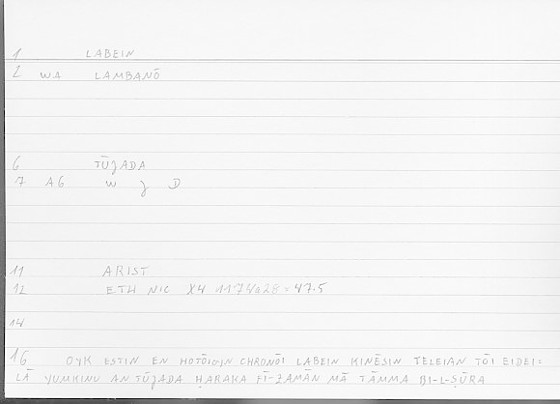 1 LABEIN
2 WA LAMBANŌ
6 TŪJADA
7 AG W J D
11 ARIST
12 ETH NIC X4 1174a28 = 47.5
14
16 OYK ESTIN EN HOTŌIOYN CHRONŌI LABEIN KINĒSIN TELEIAN TŌI EIDEI:
LĀ YUMKINU AN TŪJADA ḤARAKA FĪ-ZAMĀN MĀ TĀMMA BI-L-ṢŪRA